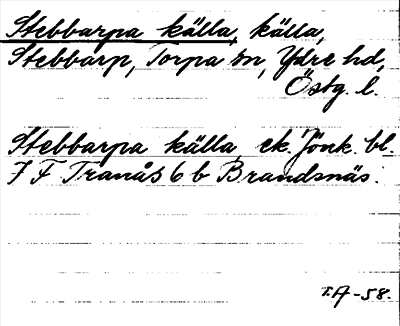 Stebbarpa källa, källa,
Stebbarp, Torpa sn, Ydre hd,
Östg. l.
Stebbarpa källa ek. Jönk. bl.
7 F Tranås 6 b Brandsnäs.
T.A-58.